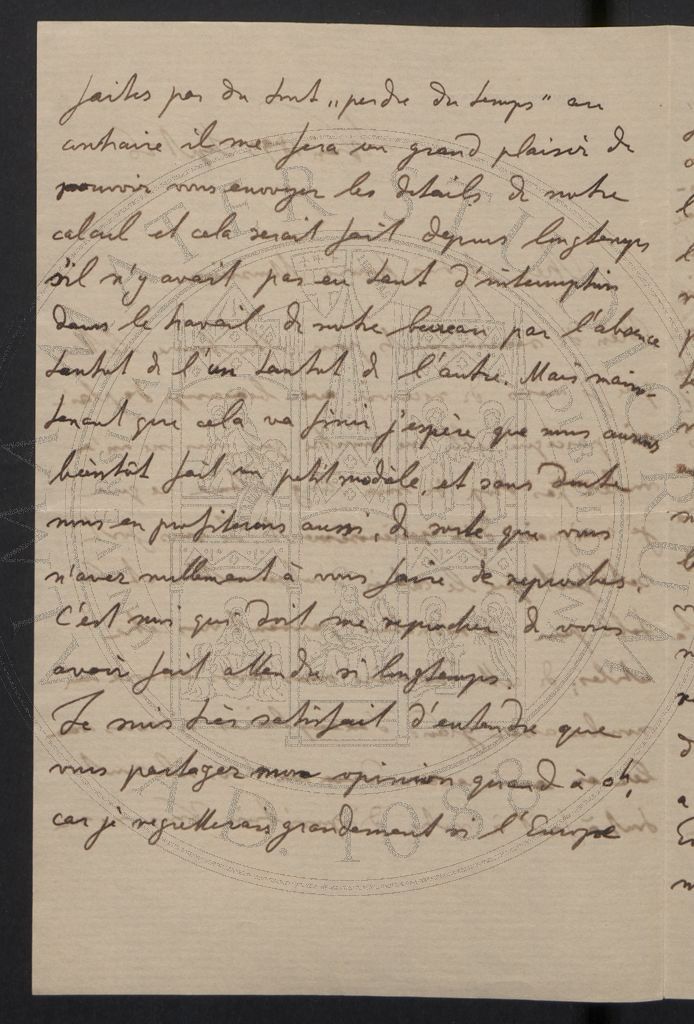 faites pas du tout „perdre du temps" au
contraire il me fera un grand plaisir de
pouvoir vous envoyer les détails de notre
calcul et cela serait fait depuis longtemps
s'il n'y avait pas eu tant d'interruption
dans le travail de notre bureau par l'absence
tantôt de l'un tantôt de l'autre. Mais main-
tenant que cela va finir j'espère que nous aurons
bientôt fait un petit modèle, et sans doute
nous en profiterons aussi, de sorte que vous
n'avez nullement à vous faire de reproches.
C'est moi qui doit me reprocher de vous
avoir fait attendre si longtemps.
Je suis très satisfait d'entendre que
vous partagez mon opinion quand à
car je regretterais grandement si l'Europe
ALMA MATER STUDIORUM
A.D. 1088